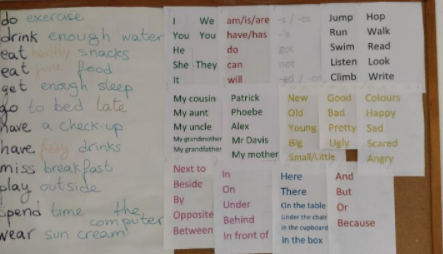 do exercise
drink enough water
eat healthy snacks
eat junk food
get enough sleep
go to bed late
have a check-up
have fizzy drinks
miss breakfast
play outside
spend time the
computer
wear sun cream
I We
You You
He
She They
It
am/is/are
have/has
do
can
will
-s / -es
-'s
got
not
-ed /
Jump Hop
Run Walk
Swim Read
Listen Look
Climb Write
My cousin
My aunt
My uncle
My grandmother
My grandfather
Patrick
Phoebe
Alex
Mr Davis
My mother
New Good
Old Bad
Young Pretty
Big Ugly
Small/Little
Colours
Happy
Sad
Scared
Angry
Next to
Beside
By
Opposite
Between
In
On
Under
Behind
In front of
Here
There
On the table
Under the chair
In the cupboard
In the box
And
But
Or
Because